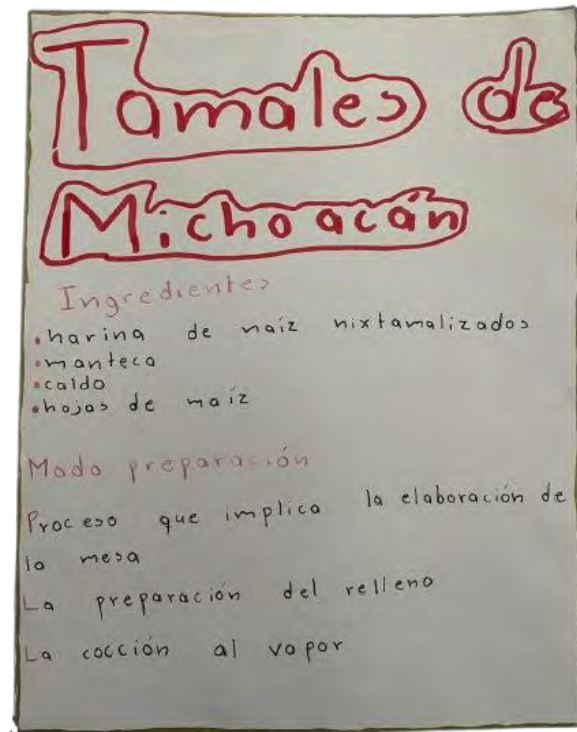 Tamales de
Michoacán
Ingredientes
• harina de maíz nixtamalizados
• manteca
• caldo
• hojas de maíz
Modo preparación
Proceso que implica la elaboración de
la mesa
La preparación del relleno
La cocción al vapor